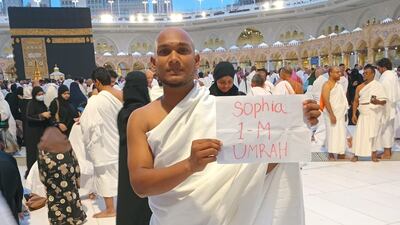 Sophia
1-M
UMRAH